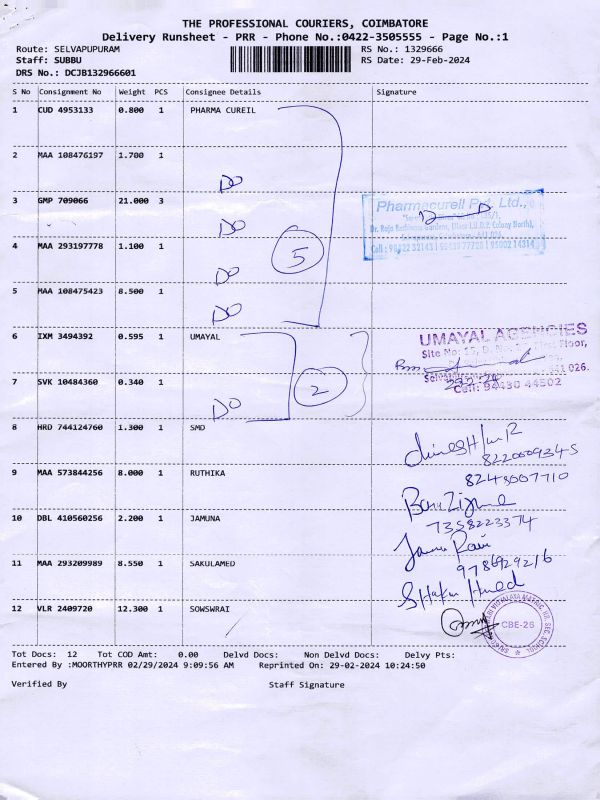 THE PROFESSIONAL COURIERS, COIMBATORE
Delivery Runsheet - PRR - Phone No.:0422-3505555 - Page No.:1
Route: SELVAPUPURAM RS No.: 1329666
Staff: SUBBU RS Date: 29-Feb-2024
DRS No.: DCJB132966601
S No Consignment No Weight PCS Consignee Details Signature
1 CUD 4953133 0.800 1 PHARMA CUREIL
2 MAA 108476197 1.700 1
DO
3 GMP 709066 21.000 3
Pharmacureil Pvt. Ltd.,
DO
4 MAA 293197778 1.100 1
5
DO
5 MAA 108475423 8.500 1
DO
6 IXM 3494392 0.595 1 UMAYAL
UMAYAL AGENCIES
Site No: 15, Floor,
641 026.
7 SVK 10484360 0.340 1
2
Cell: 94430 44502
DO
8 HRD 744124760 1.300 1 SMD
8220009345
9 MAA 573844256 8.000 1 RUTHIKA
8248007710
10 DBL 410560256 2.200 1 JAMUNA
7358223374
11 MAA 293209989 8.550 1 SAKULAMED
9786929216
12 VLR 2409720 12.300 1 SOWSWRAI
CBE-26
Tot Docs: 12 Tot COD Amt: 0.00 Delvd Docs: Non Delvd Docs: Delvy Pts:
Entered By :MOORTHYPRR 02/29/2024 9:09:56 AM Reprinted On: 29-02-2024 10:24:50
Verified By Staff Signature